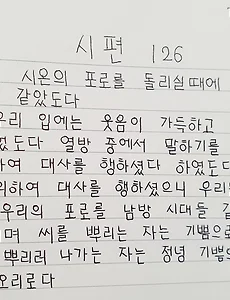 시편 126
시온의 포로를 돌리실 때에
같았도다
우리 입에는 웃음이 가득하고
었도다 열방 중에서 말하기를
하여 대사를 행하셨다 하였도다
위하여 대사를 행하셨으니 우리는
우리의 포로를 남방 시내들 같
며 씨를 뿌리는 자는 기쁨으로
뿌리러 나가는 자는 정녕 기쁨으
오리로다